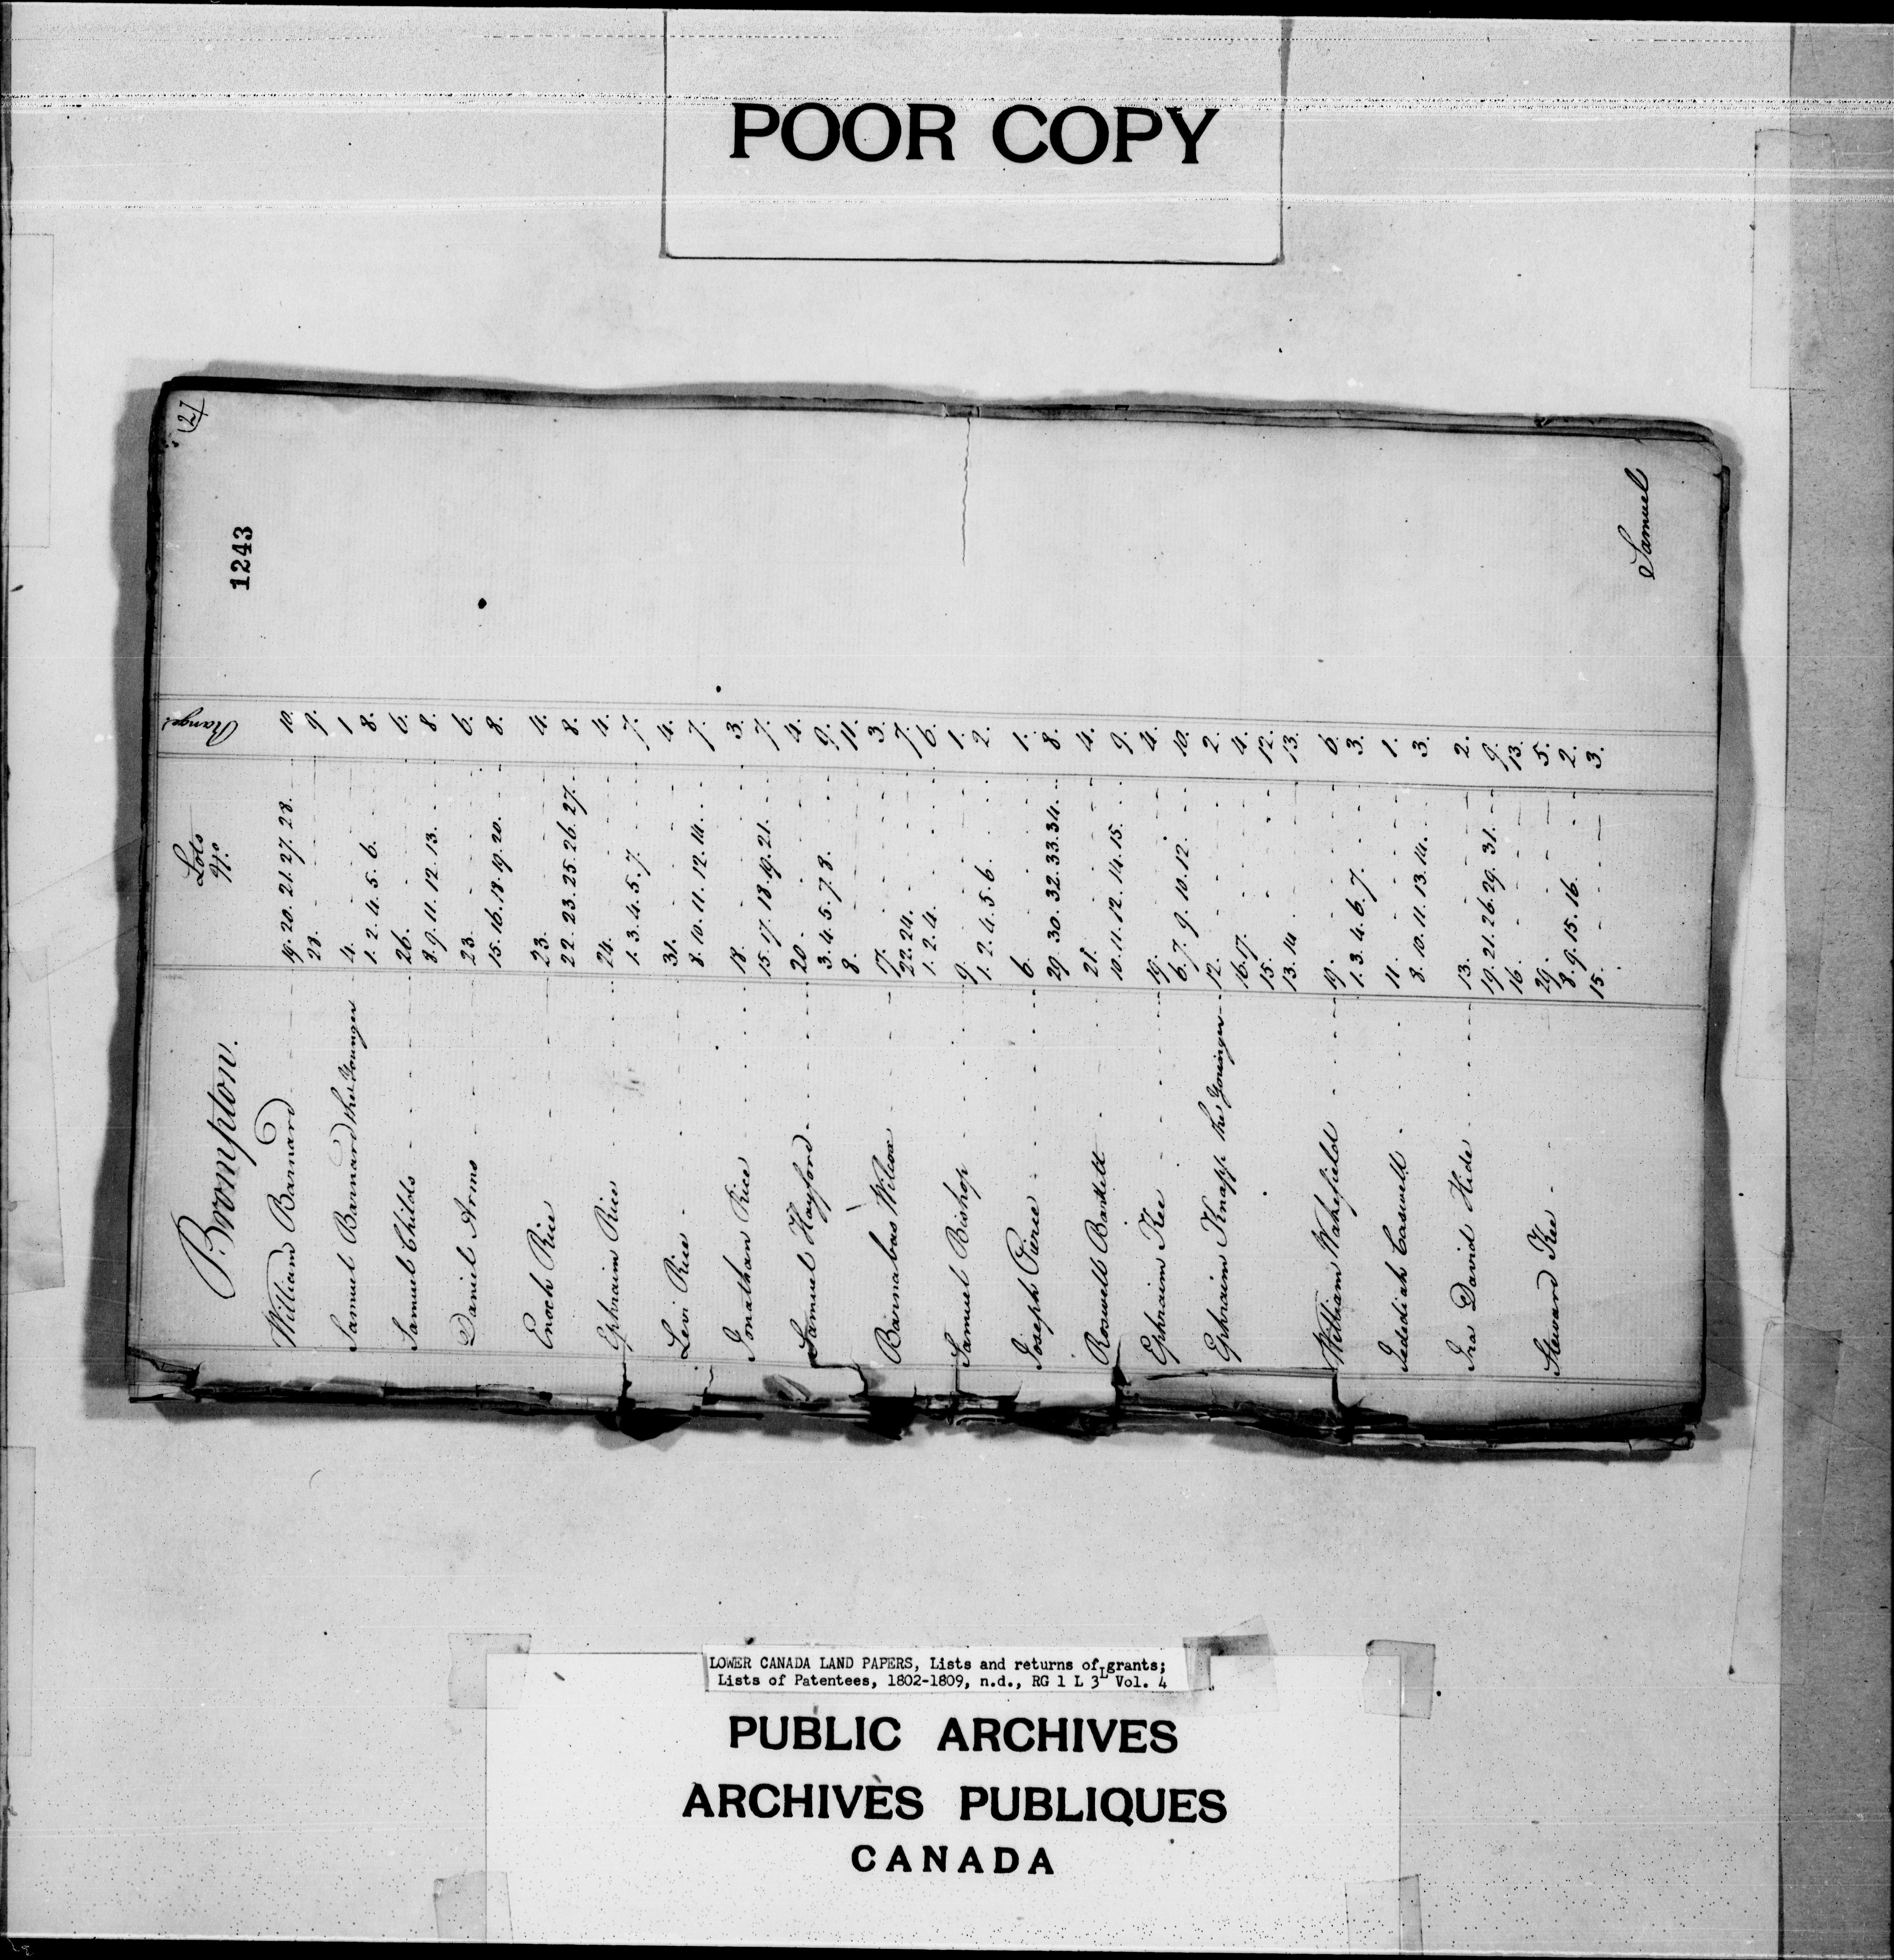 POOR COPY
(2)
1243
Brompton.
Lots No. Ranges
William Barnard 19. 20. 21. 27. 28. 10.
28. 9.
Samuel Barnard the Younger 4. 1
1. 2. 4. 5. 6. 8.
Samuel Childs 26. 6.
8. 9. 11. 12. 13. 8.
Daniel Arms 23. 6.
15. 16. 18. 19. 20. 8.
Enoch Rice 23. 4.
22. 23. 25. 26. 27. 8.
Ephraim Rice 24. 4.
1. 3. 4. 5. 7. 7.
Levi Rice 31. 4.
8. 10. 11. 12. 14. 7.
Jonathan Rice 18. 3.
15. 17. 18. 19. 21. 7.
Samuel Hayford 20. 4.
3. 4. 5. 7. 8. 9.
8. 11.
Barnabas Wilcox 17. 3.
22. 24. 7.
1. 2. 4. 6.
Samuel Bishop 9. 1.
1. 2. 4. 5. 6. 2.
Joseph Pierce 6. 1.
29. 30. 32. 33. 34. 8.
Roswell Bartlett 21. 4.
10. 11. 12. 14. 15. 9.
Ephraim Kee 19. 4.
6. 7. 9. 10. 12. 10.
Ephraim Knapp the Younger 12. 2.
16. 17. 4.
15. 12.
13. 14. 13.
William Wakefield 19. 6.
1. 3. 4. 6. 7. 3.
Jedediah Caswell 11. 1.
8. 10. 11. 13. 14. 3.
Ira David Hide 13. 2.
19. 21. 26. 29. 31. 9.
16. 13.
Steward Kee 29. 5.
8. 9. 15. 16. 2.
15. 3.
Samuel
LOWER CANADA LAND PAPERS, Lists and returns of grants;
Lists of Patentees, 1802-1809, n.d., RG 1 L 3L Vol. 4
PUBLIC ARCHIVES
ARCHIVES PUBLIQUES
CANADA